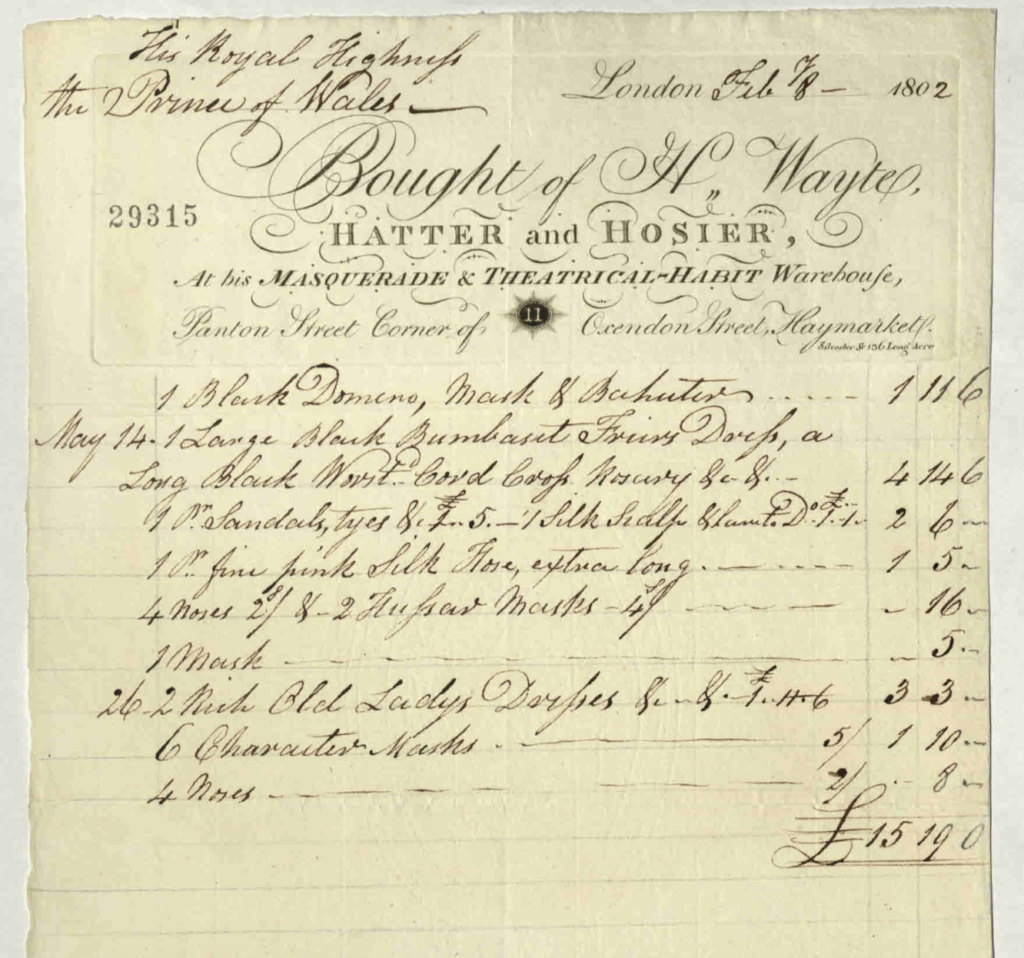 His Royal Highness
the Prince of Wales —
London Feb 7/8 — 1802
Bought of H,, Wayte,
29315
HATTER and HOSIER,
At his MASQUERADE & THEATRICAL-HABIT Warehouse,
Panton Street Corner of 11 Oxendon Street, Haymarket.
Silvester Sc 156 Long Acre
1 Black Domino, Mask & Bahuter ..... 1 11 6
May 14 - 1 Large Black Bumbaset Friers Dress, a
Long Black Worstd Cord Cross Rosary &c &c - 4 14 6
1 Pr Sandals, tyes &c £1.. 5. — 1 Silk Scalp & Do £1.1. 2 6 -
1 Pr fine pink Silk Hose, extra long. 1 5 -
4 Noses 2/ & - 2 Hussar Masks - 4/ - 16 -
1 Mask - 5 -
26 - 2 Rich Old Ladys Dresses &c - & - £1.11.6 3 3 -
6 Character Masks. 5/ 1 10 -
4 Noses 2/ - 8 -
£15 19 0